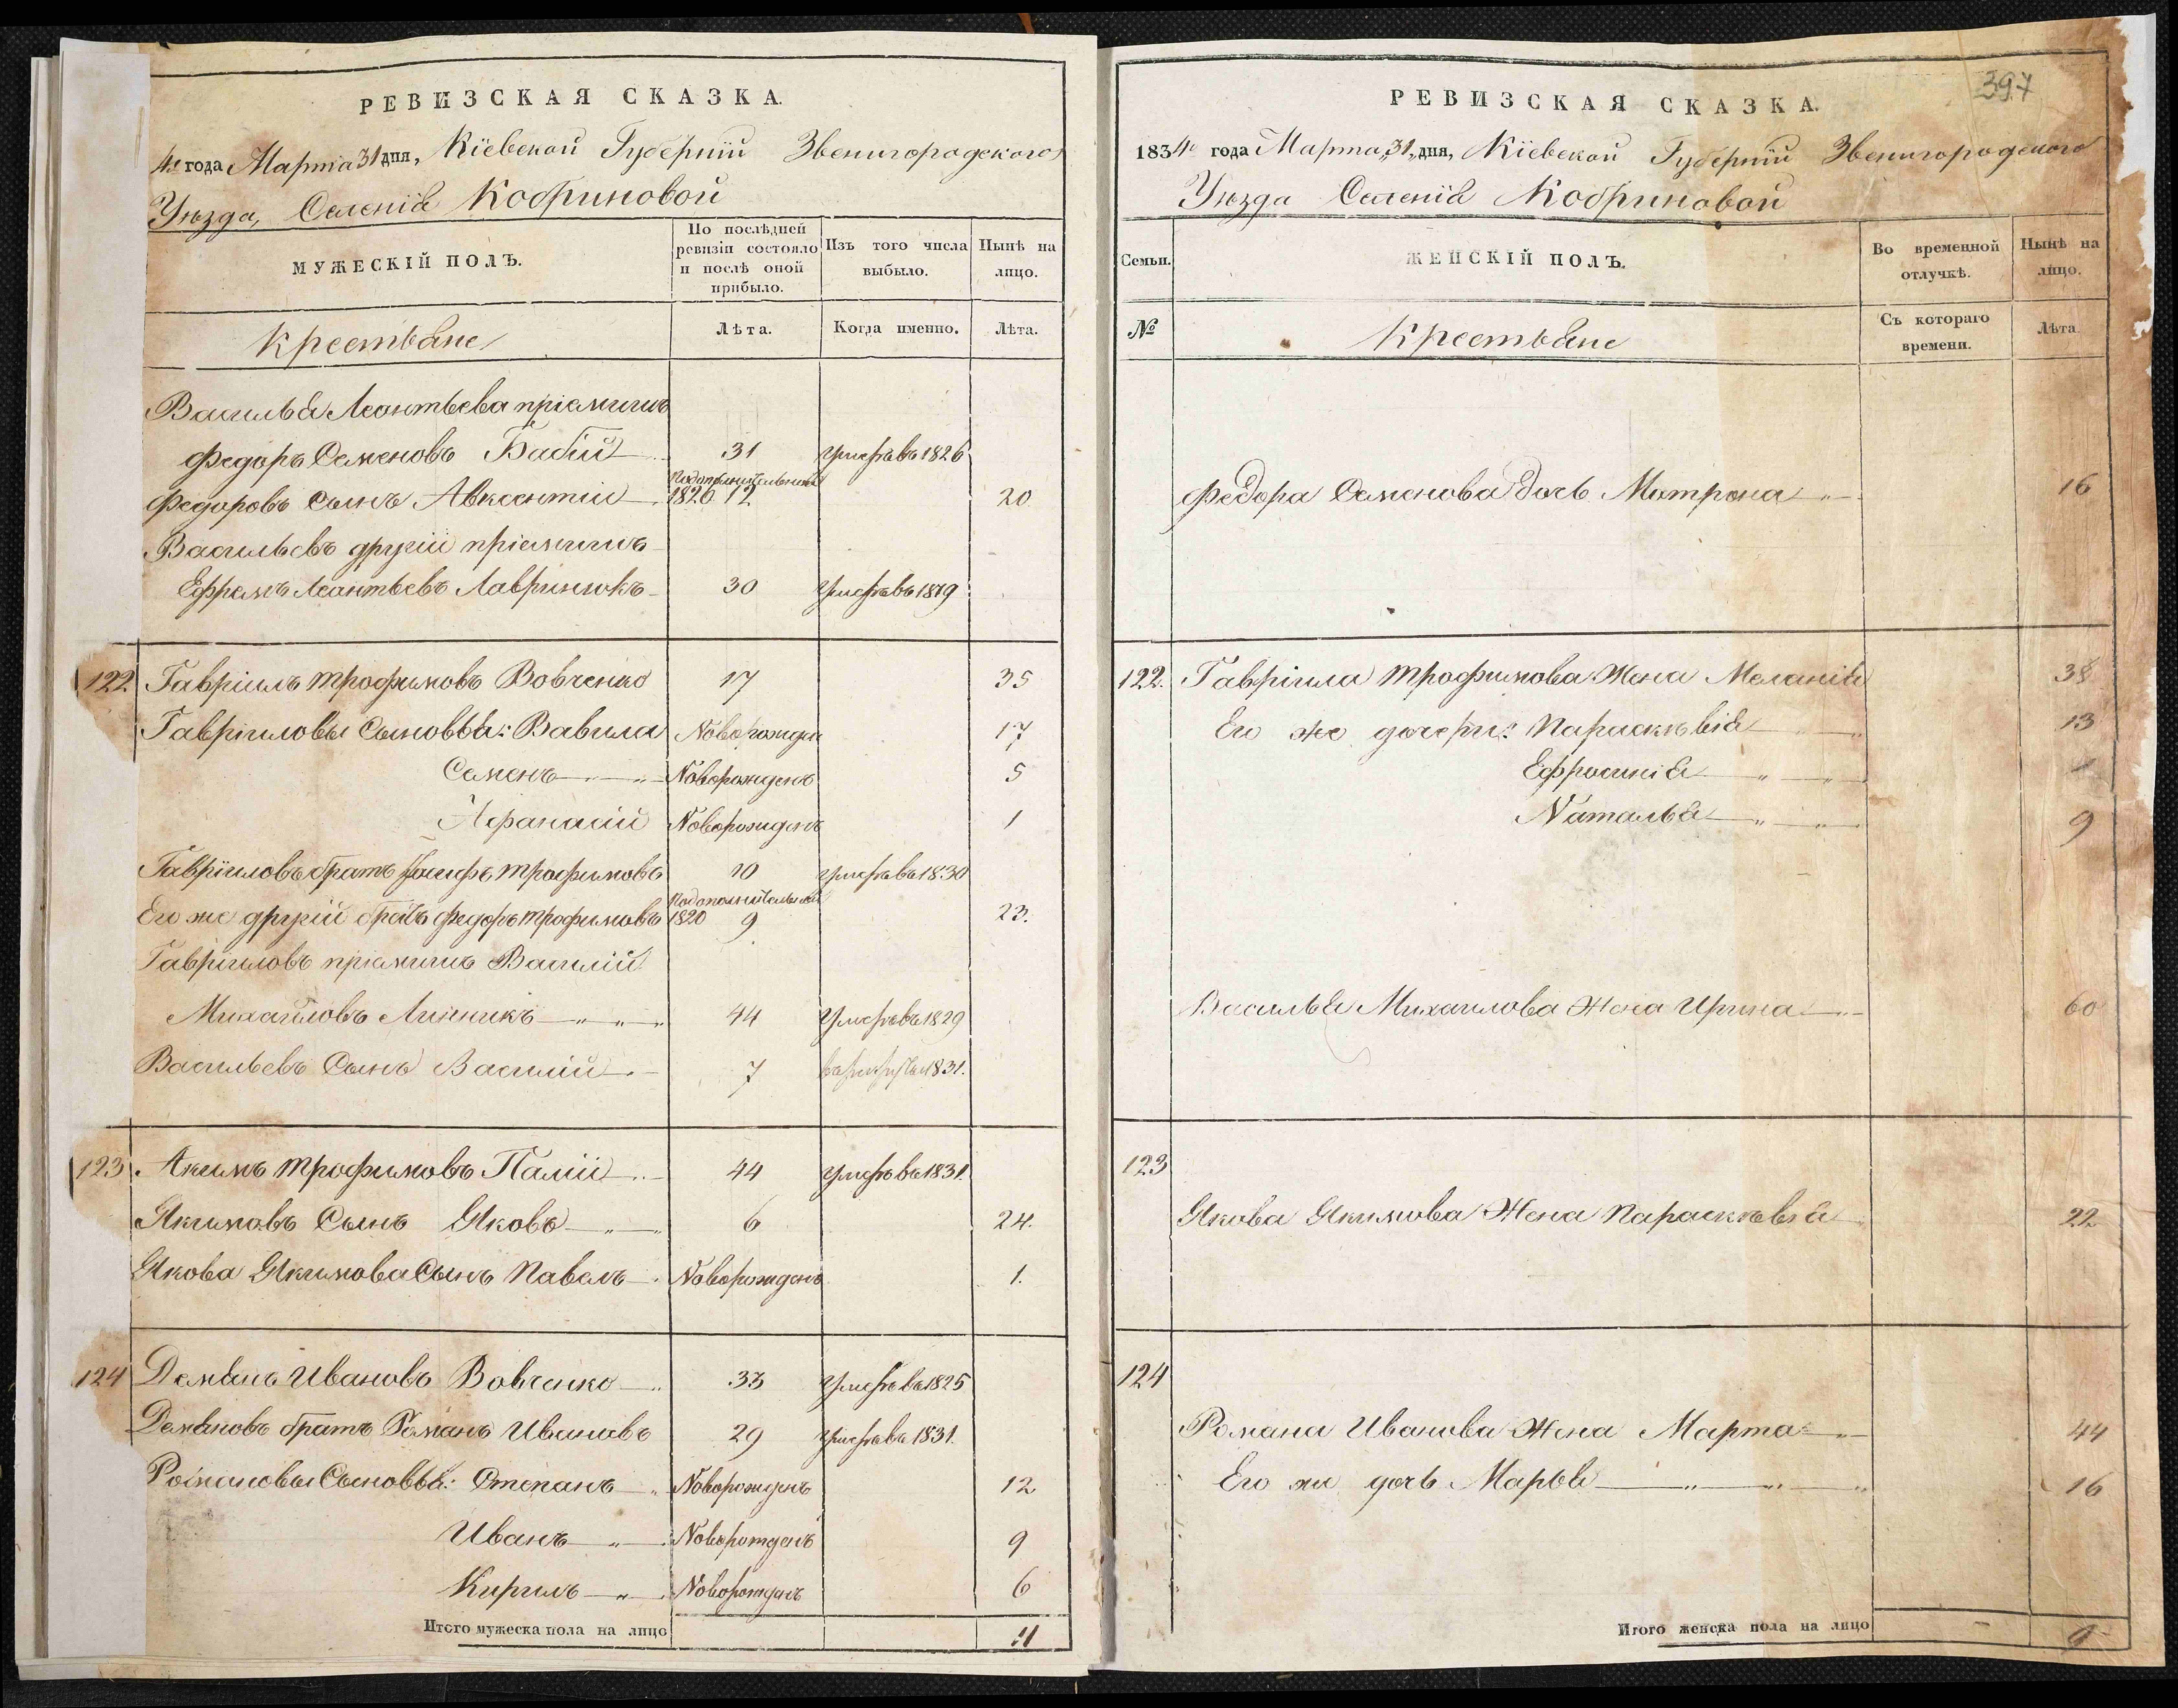 РЕВИЗСКАЯ СКАЗКА.
4 года Марта 31 дня, Кіевской Губерніи Звенигородскаго
Уѣзда, Селенія Кобриновой
МУЖЕСКІЙ ПОЛЪ.
По послѣдней ревизіи состояло и послѣ оной прибыло.
Изъ того числа выбыло.
Нынѣ на лицо.
Крестьяне
Лѣта.
Когда именно.
Лѣта.
Василья Леонтьева пріемышъ
Федоръ Семеновъ Бабій 31 умеръ въ 1826
Федоровъ сынъ Авксентій 1826 12 20
Васильевъ другій пріемышъ
Ефремъ Леонтьевъ Лавринюкъ 30 умеръ въ 1819
122 Гавріилъ Трофимовъ Вовченко 17 35
Гавріиловы сыновья: Вавила Новорожден 17
Семенъ Новорожденъ 5
Афанасій Новорожденъ 1
Гавріиловъ братъ Іосифъ Трофимовъ 10 умеръ въ 1830
Его же другій братъ Федоръ Трофимовъ 1820 9 23.
Гавріиловъ пріемышъ Василій
Михайловъ Линникъ 44 Умеръ въ 1829
Васильевъ Сынъ Василій 7 1831.
123 Акимъ Трофимовъ Палій 44 умеръ въ 1831.
Якимовъ Сынъ Яковъ 6 24.
Якова Якимова Сынъ Павелъ Новорожденъ 1.
124 Демянъ Ивановъ Вовченко 33 умеръ въ 1825
Демяновъ братъ Романъ Ивановъ 29 умеръ въ 1831.
Романовы Сыновья: Степанъ Новорожденъ 12
Иванъ Новорожденъ 9
Кирилъ Новорожденъ 6
Итого мужеска пола на лицо 11
397
РЕВИЗСКАЯ СКАЗКА.
1834 года Марта 31 дня, Кіевской Губерніи Звенигородскаго
Уѣзда Селенія Кобриновой
Семьи.
ЖЕНСКІЙ ПОЛЪ.
Во временной отлучкѣ.
Нынѣ на лицо.
№
Крестьяне
Съ котораго времени.
Лѣта
Федора Семенова дочь Матрона 16
122. Гавріила Трофимова Жена Меланія 38
Его же дочери: Параскѣвія 13
Ефросинія
Наталья 9
Василья Михаилова Жена Ирина 60
123
Якова Якимова Жена Параскѣвія 22
124
Романа Иванова Жена Марта 44
Его же дочь Марья 16
Итого женска пола на лицо 9